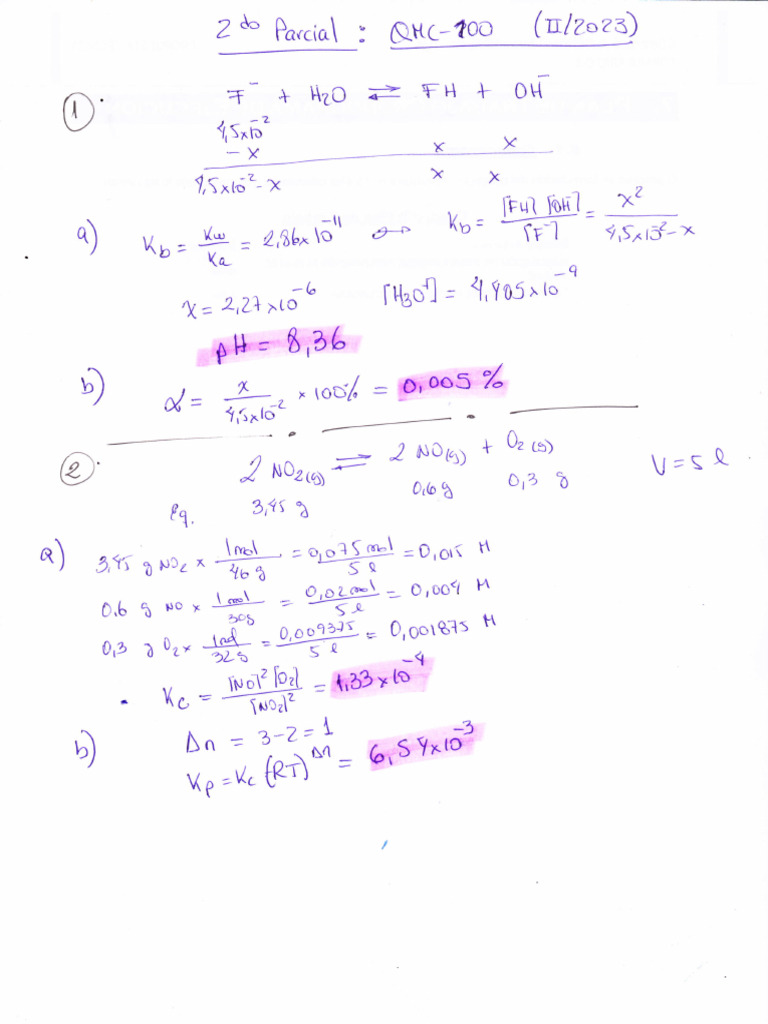 2do Parcial : QMC-100 (II/2023)
① F⁻ + H2O ⇌ FH + OH⁻
4,5x10⁻²
- x x x
4,5x10⁻² - x x x
a) Kb = Kw/Ka = 2,86x10⁻¹¹ ⇒ Kb = [FH] [OH⁻]/[F⁻] = x²/4,5x10⁻² - x
x = 2,27x10⁻⁶ [H3O⁺] = 4,405x10⁻⁹
pH = 8,36
b) α = x/4,5x10⁻² * 100% = 0,005 %
② 2 NO2(g) ⇌ 2 NO(g) + O2(g) V = 5 l
Eq. 3,45 g 0,6 g 0,3 g
a) 3,45 g NO2 x 1mol/46 g = 0,075 mol/5 l = 0,015 M
0,6 g NO x 1mol/30g = 0,02mol/5 l = 0,004 M
0,3 g O2 x 1mol/32g = 0,009375/5 l = 0,001875 M
• Kc = [NO]² [O2]/[NO2]² = 1,33x10⁻⁴
b) Δn = 3-2 = 1
Kp = Kc (RT)^Δn = 6,54x10⁻³